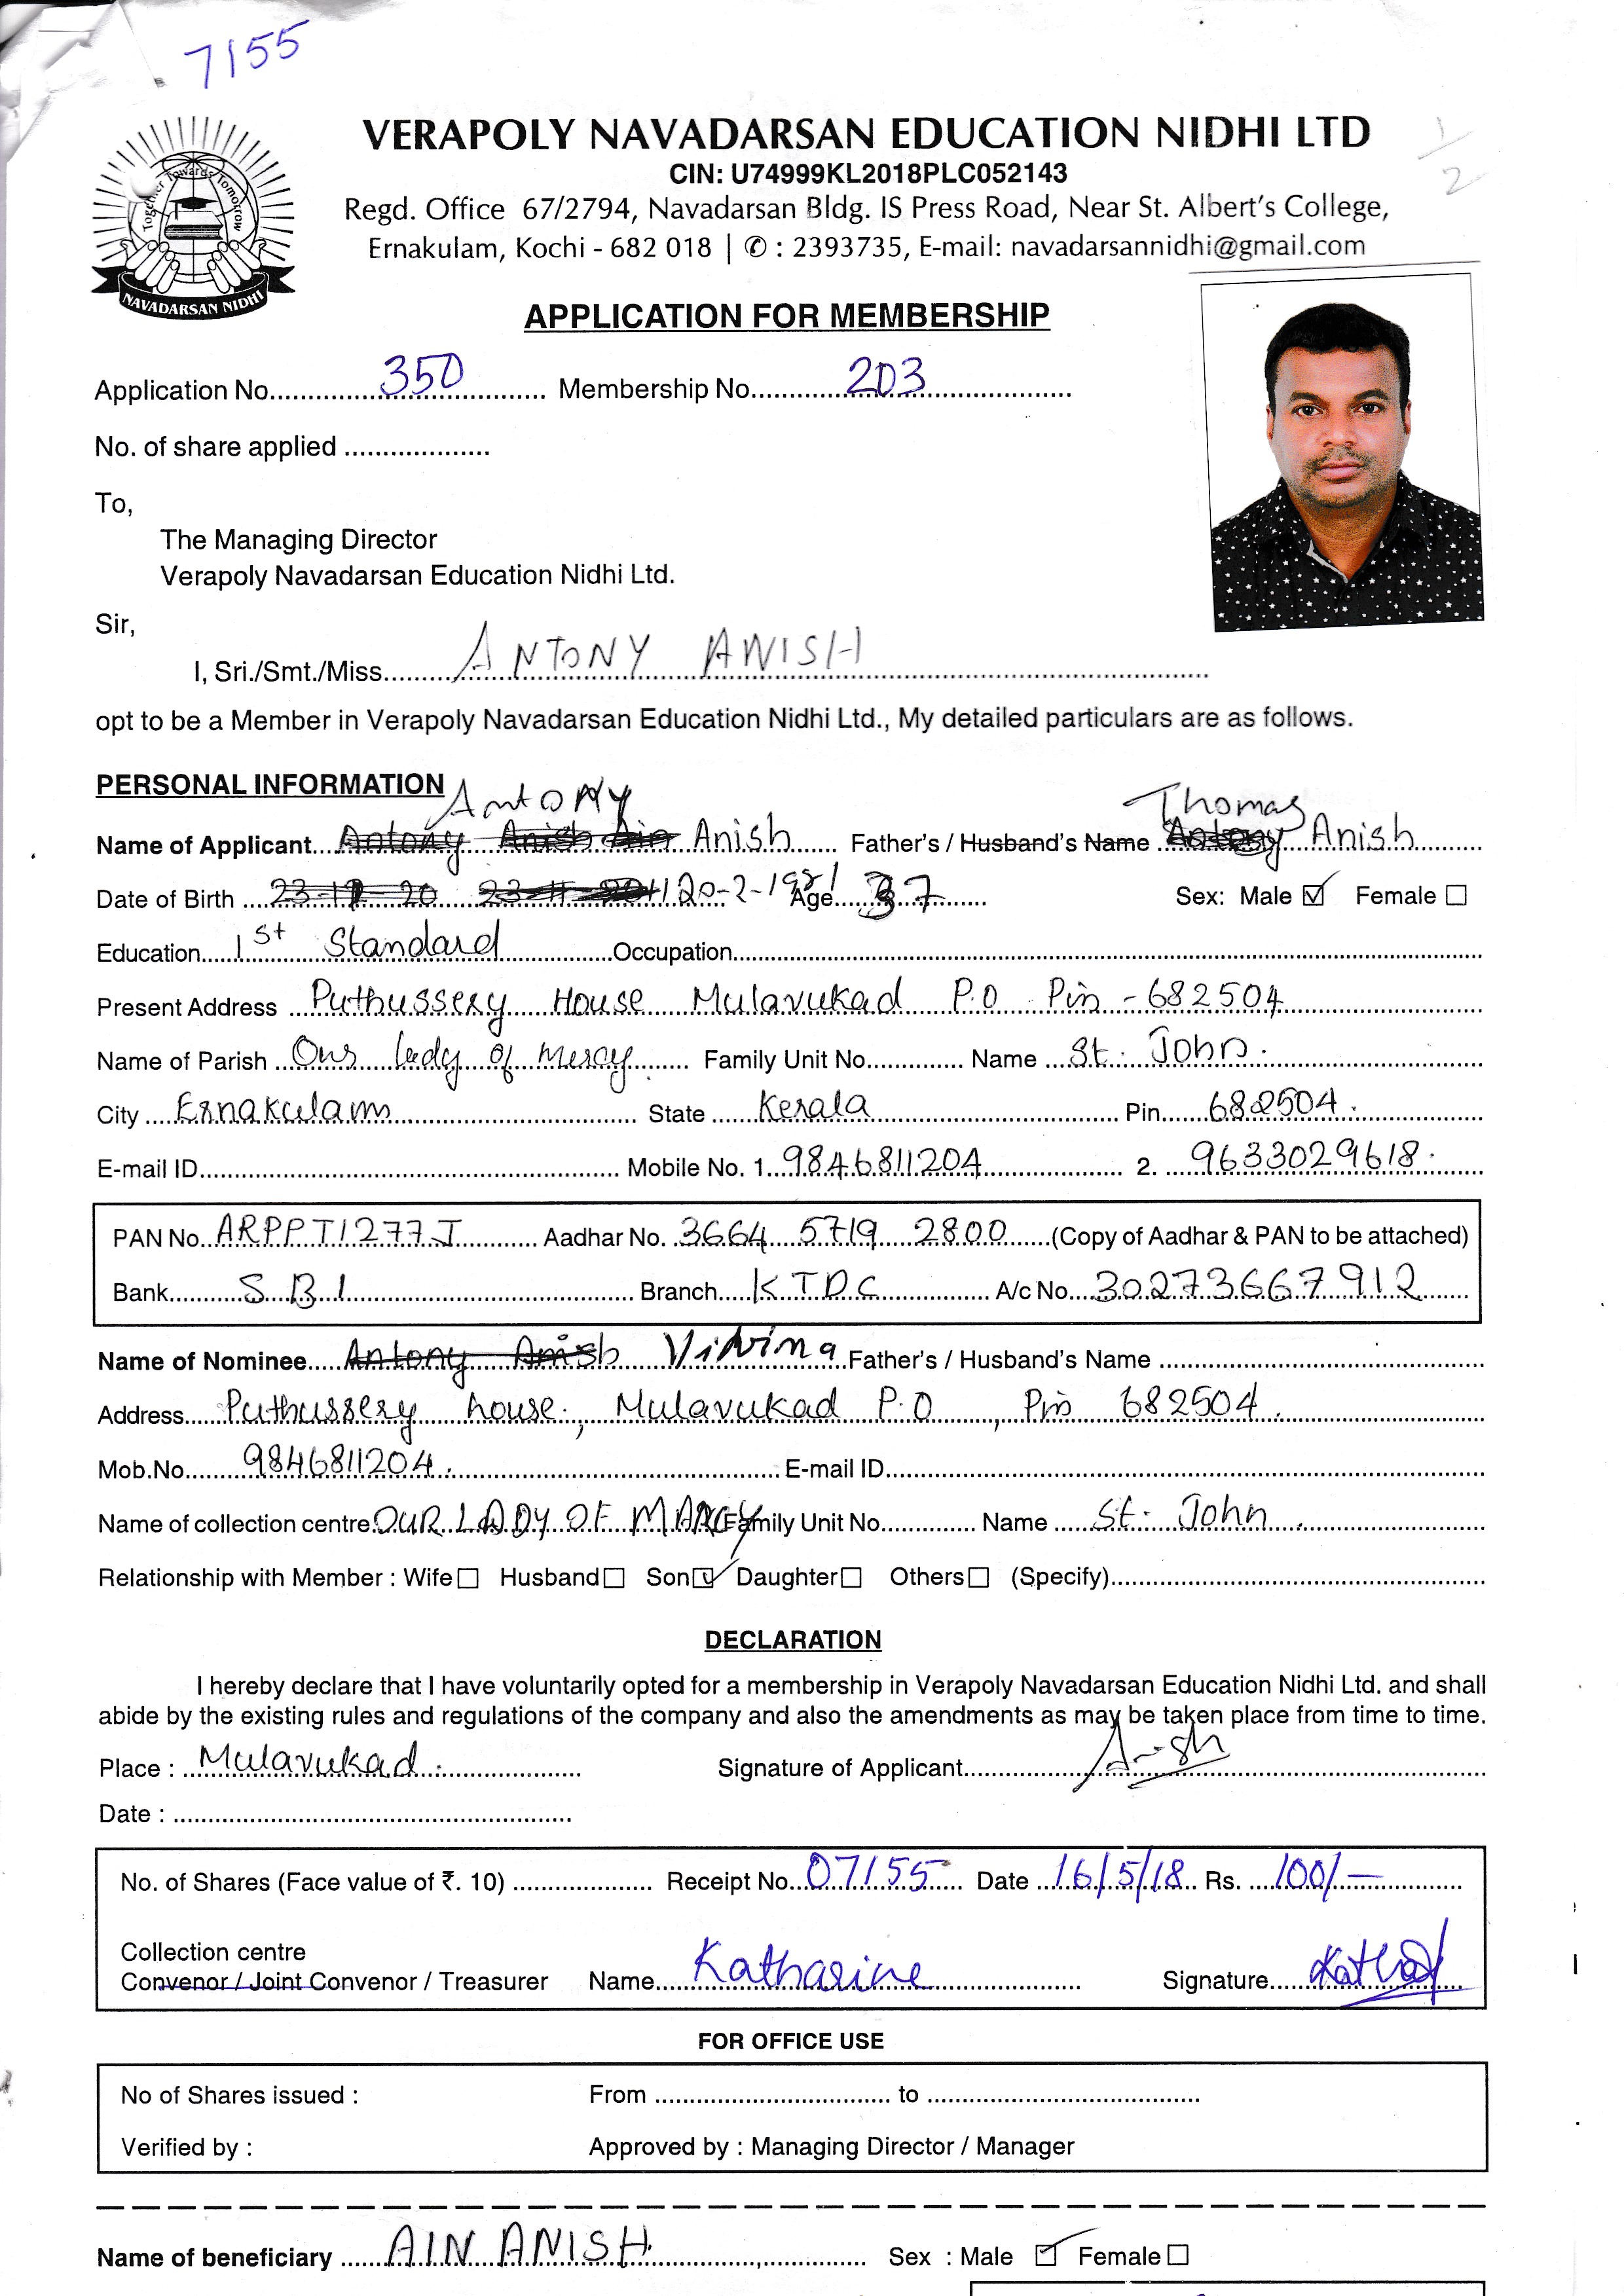 7155
VERAPOLY NAVADARSAN EDUCATION NIDHI LTD
CIN: U74999KL2018PLC052143
Regd. Office 67/2794, Navadarsan Bldg. IS Press Road, Near St. Albert's College,
Ernakulam, Kochi - 682 018 | ✆ : 2393735, E-mail: navadarsannidhi@gmail.com
1/2
Together Towards Tomorrow
NAVADARSAN NIDHI
APPLICATION FOR MEMBERSHIP
Application No. 350 Membership No. 203
No. of share applied
To,
The Managing Director
Verapoly Navadarsan Education Nidhi Ltd.
Sir,
I, Sri./Smt./Miss. ANTONY ANISH
opt to be a Member in Verapoly Navadarsan Education Nidhi Ltd., My detailed particulars are as follows.
PERSONAL INFORMATION
Name of Applicant Antony Anish Father's / Husband's Name Thomas Anish
Date of Birth 20-2-1981 Age 37 Sex: Male ☑ Female ☐
Education 1st Standard Occupation
Present Address Puthussery House Mulavukad P.O Pin - 682504
Name of Parish Our lady of mercy Family Unit No. Name St. John.
City Ernakulam State Kerala Pin 682504.
E-mail ID Mobile No. 1. 9846811204 2. 9633029618.
PAN No. ARPPT1277J Aadhar No. 3664 5719 2800 (Copy of Aadhar & PAN to be attached)
Bank SBI Branch KTDC A/c No. 30273667912
Name of Nominee Antony Anish Father's / Husband's Name
Address Puthussery house, Mulavukad P.O, Pin 682504.
Mob.No. 9846811204. E-mail ID
Name of collection centre OUR LADY OF MARCY Family Unit No. Name St. John.
Relationship with Member : Wife ☐ Husband ☐ Son ☑ Daughter ☐ Others ☐ (Specify)
DECLARATION
I hereby declare that I have voluntarily opted for a membership in Verapoly Navadarsan Education Nidhi Ltd. and shall
abide by the existing rules and regulations of the company and also the amendments as may be taken place from time to time.
Place : Mulavukad. Signature of Applicant Anish
Date :
No. of Shares (Face value of ₹. 10) Receipt No. 07155 Date 16/5/18 Rs. 100/-
Collection centre
Convenor / Joint Convenor / Treasurer Name Katharine Signature
FOR OFFICE USE
No of Shares issued : From to
Verified by : Approved by : Managing Director / Manager
Name of beneficiary AIN ANISH Sex : Male ☑ Female ☐